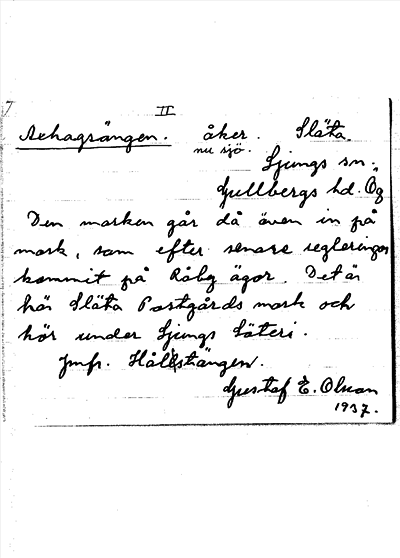 7
II
Axhagsängen. åker. Släta.
nu sjö.
Ljungs sn.
Gullbergs hd. Ög
Den marken går då även in på
mark, som efter senare regleringar
kommit på Råby ägor. Det är
här Släta Postgårds mark och
hör under Ljungs Säteri.
Jmfr. Hållstängen.
Gustaf E. Olsson
1937.